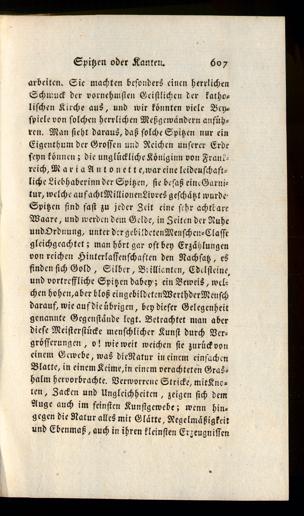 Spitzen oder Kanten. 607
arbeiten. Sie machten besonders einen herrlichen
Schmuck der vornehmsten Geistlichen der katho-
lischen Kirche aus, und wir könnten viele Bey-
spiele von solchen herrlichen Meßgewändern anfüh-
ren. Man sieht daraus, daß solche Spitzen nur ein
Eigenthum der Grossen und Reichen unserer Erde
seyn können; die unglückliche Königinn von Frank-
reich, Maria Antonette, war eine leidenschaft-
liche Liebhaberinn der Spitzen, sie besaß eine Garni-
tur, welche auf acht Millionen Livres geschätzt wurde.
Spitzen sind fast zu jeder Zeit eine sehr achtbare
Waare, und werden dem Gelde, in Zeiten der Ruhe
und Ordnung, unter der gebildeten Menschen-Classe
gleichgeachtet; man hört gar oft bey Erzählungen
von reichen Hinterlassenschaften den Nachsatz, es
finden sich Gold, Silber, Brillianten, Edelsteine,
und vortreffliche Spitzen dabey; ein Beweis, wel-
chen hohen, aber bloß eingebildeten Werth der Mensch
darauf, wie auf die übrigen, bey dieser Gelegenheit
genannte Gegenstände legt. Betrachtet man aber
diese Meisterstücke menschlicher Kunst durch Ver-
grösserungen, o! wie weit weichen sie zurück von
einem Gewebe, was die Natur in einem einfachen
Blatte, in einem Keime, in einem verachteten Gras-
halm hervorbrachte. Verworrene Stricke, mit Kno-
ten, Zacken und Ungleichheiten, zeigen sich dem
Auge auch im feinsten Kunstgewebe; wenn hin-
gegen die Natur alles mit Glätte, Regelmäßigkeit
und Ebenmaß, auch in ihren kleinsten Erzeugnissen